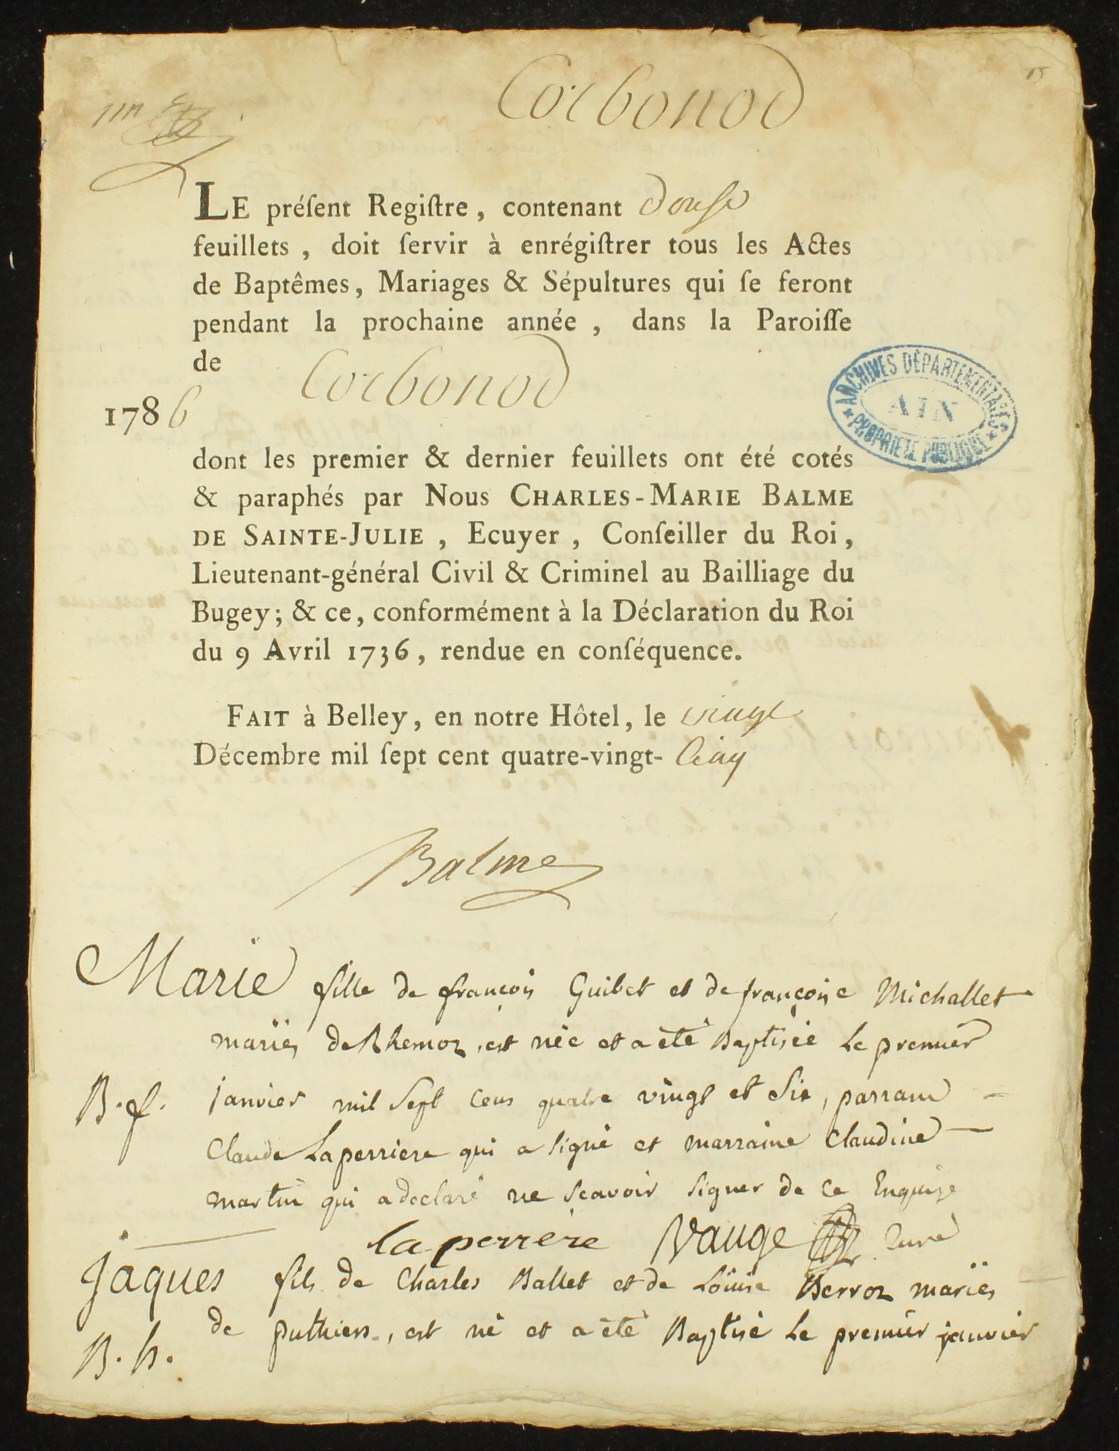 Corbonod
15
LE préſent Regiſtre, contenant Douse
feuillets, doit ſervir à enrégiſtrer tous les Actes
de Baptêmes, Mariages & Sépultures qui ſe feront
pendant la prochaine année, dans la Paroiſſe
de Corbonod
1786
ARCHIVES DÉPARTEMENTALES
AIN
PROPRIÉTÉ PUBLIQUE
dont les premier & dernier feuillets ont été cotés
& paraphés par Nous CHARLES-MARIE BALME
DE SAINTE-JULIE, Ecuyer, Conſeiller du Roi,
Lieutenant-général Civil & Criminel au Bailliage du
Bugey; & ce, conformément à la Déclaration du Roi
du 9 Avril 1736, rendue en conſéquence.
FAIT à Belley, en notre Hôtel, le vingt
Décembre mil ſept cent quatre-vingt-cinq
Balme
Marie fille de françois Guibet et de françoise Michallet
mariés de Rhemoz, est née et a été Baptisée Le premier
B. f. janvier mil Sept Cens quatre vingt et Six, parrain
Claude Laperriere qui a signé et marraine Claudine
martin qui a declaré ne scavoir signer de ce Enquise
laperrere Vauge Curé
jaques fils de Charles Ballet et de Loüise Berroz mariés
de puthiers, est né et a été Baptisé Le premier janvier
B. h.